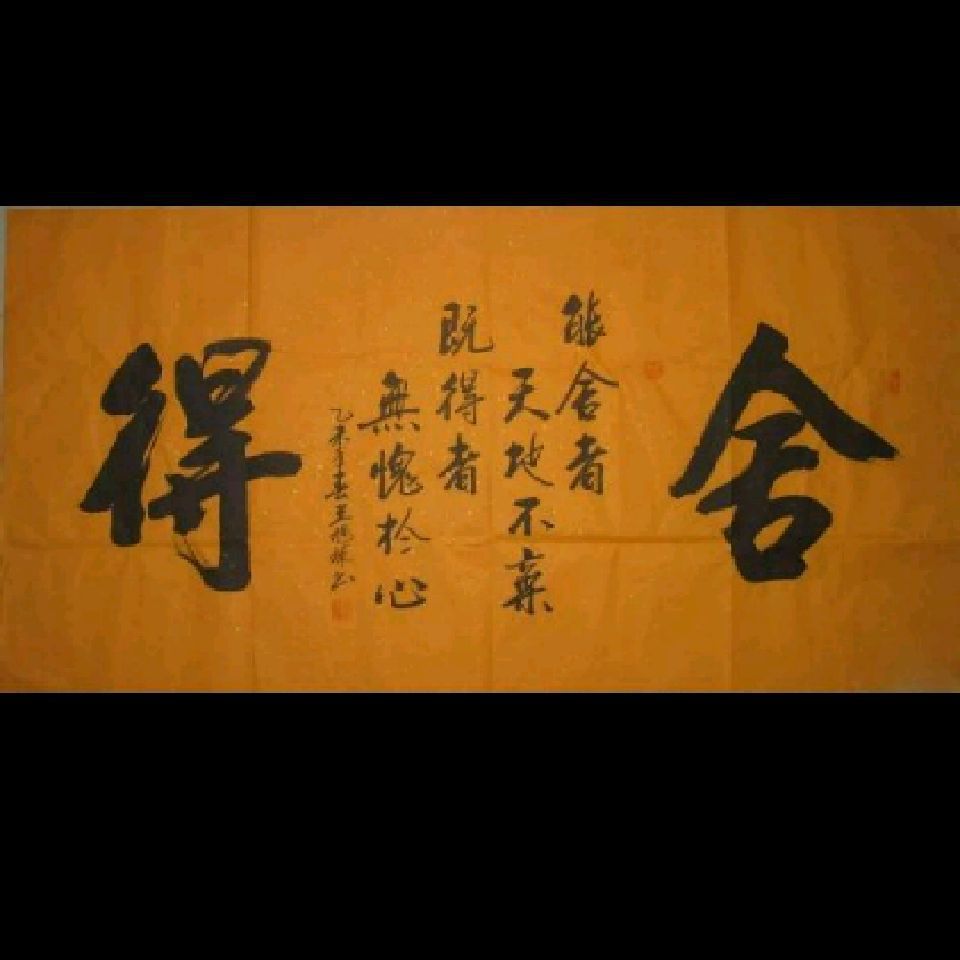 舍
能舍者
天地不棄
既得者
無愧於心
得
乙未年春王
書